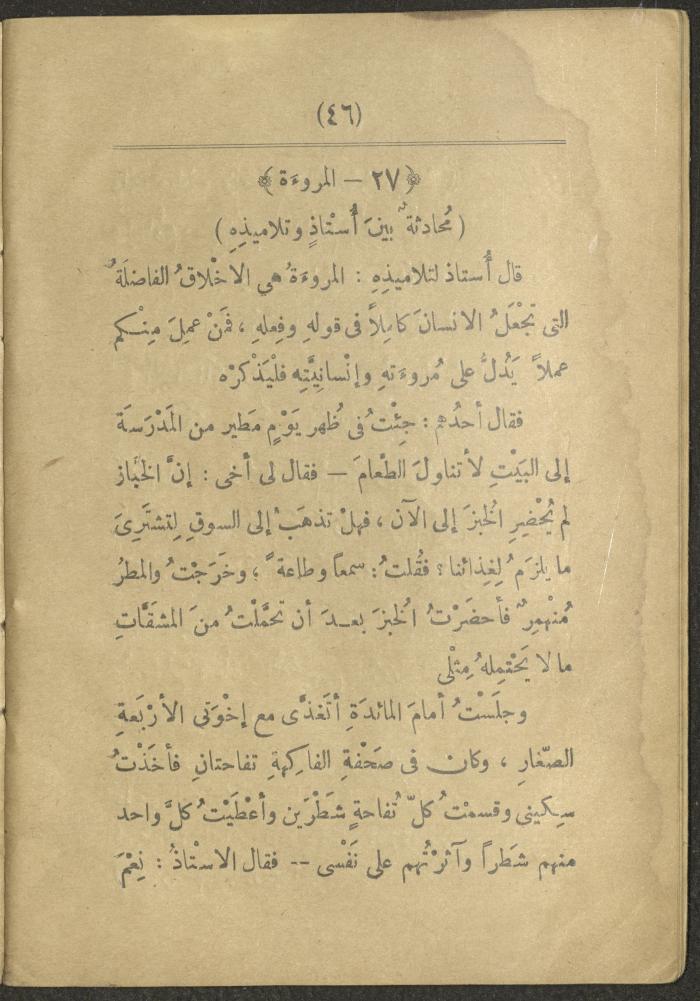 (٤٦)
﴿٢٧ – المروءَة﴾
( مُحادثةٌ بينَ أُسْتاذٍ وتلاميذِهِ )
قال أُستاذ لتلاميذِهِ : المروءَةُ هى الاخْلاقُ الفاضلَةُ
التى تَجْعَلُ الانسانَ كامِلاً فى قولهِ وفِعلهِ ، فمَنْ عمِلَ مِنْكم
عملاً يَدُلُّ على مُروءَتهِ وإنْسانِيَّتِه فلْيَذْكرْه
فقال أحدُهم : جِئْتُ فى ظُهر يَوْمٍ مَطير من المَدْرَسَة
إلى البَيْتِ لأتناولَ الطّعامَ – فقال لى أخى : إنَّ الخَباز
لم يُحْضِرِ الخُبزَ إلى الآن ، فهلْ تذهَبُ إلى السوقِ لِتشتَرِىَ
ما يلزَمُ لِغِذائنا ؟ فقُلتُ : سمعاً وطاعةً ؛ وخَرَجْتُ والمطرُ
مُنْهمِرٌ فأحضَرْتُ الخُبزَ بعدَ أن تحمَّلْتُ منَ المشقَّاتِ
ما لا يَحْتمِلهُ مِثْلى
وجلَسْتُ أمامَ المائدَةِ أتَغذَّى مع إخْوَتى الأرْبَعةِ
الصّغارِ ، وكان فى صَحْفةِ الفاكِهةِ تفاحتانِ فأخَذْتُ
سِكينى وقسمْتُ كلّ تُفاحةٍ شَطْرَين وأعْطَيْتُ كلَّ واحد
منهم شَطراً وآثرْتُهم على نَفْسى -- فقال الاسْتاذُ : نِعْمَ